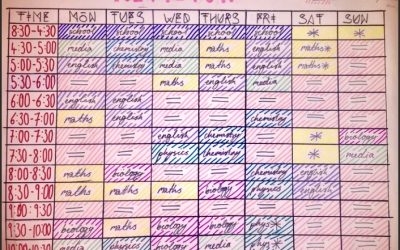 TIME MON TUES WED THURS FRI SAT SUN
8:30-4:30 school school school school school * *
4:30-5:00 media chemistry media maths english maths*
5:00-5:30 english chemistry media maths english maths*
5:30-6:00 maths english media
6:00-6:30 english english
6:30-7:00 maths chemistry
7:00-7:30 english chemistry * biology
7:30-8:00 physics chemistry * media
8:00-8:30 maths biology physics english
8:30-9:00 maths maths maths biology physics english
9:00-9:30
9:30-10:00 biology maths biology biology
media physics biology media